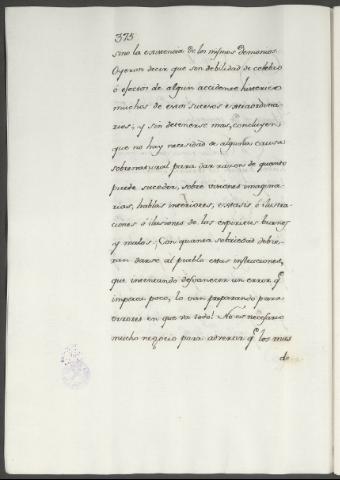 375
sino la existencia de los mismos Demonios.
Oyeron decir que son debilidad de celebro
ó efectos de algun accidente histerico
muchos de estos sucesos extraordina-
rios; y sin detenerse mas, concluyen
que no hay necesidad de alguna causa
sobrenatural para dar razon de quanto
puede suceder, sobre visiones imagina-
rias, hablas interiores, extasis ó ilustra-
ciones ó ilusiones de los espiritus buenos
y malos. ¡Con quanta sobriedad debie-
ran darse al pueblo estas instrucciones,
que intentando desvanecer un error q.e
importa poco, lo van preparando para
errores en que va todo! No es necesario
mucho negocio para advertir q.e los mas
do